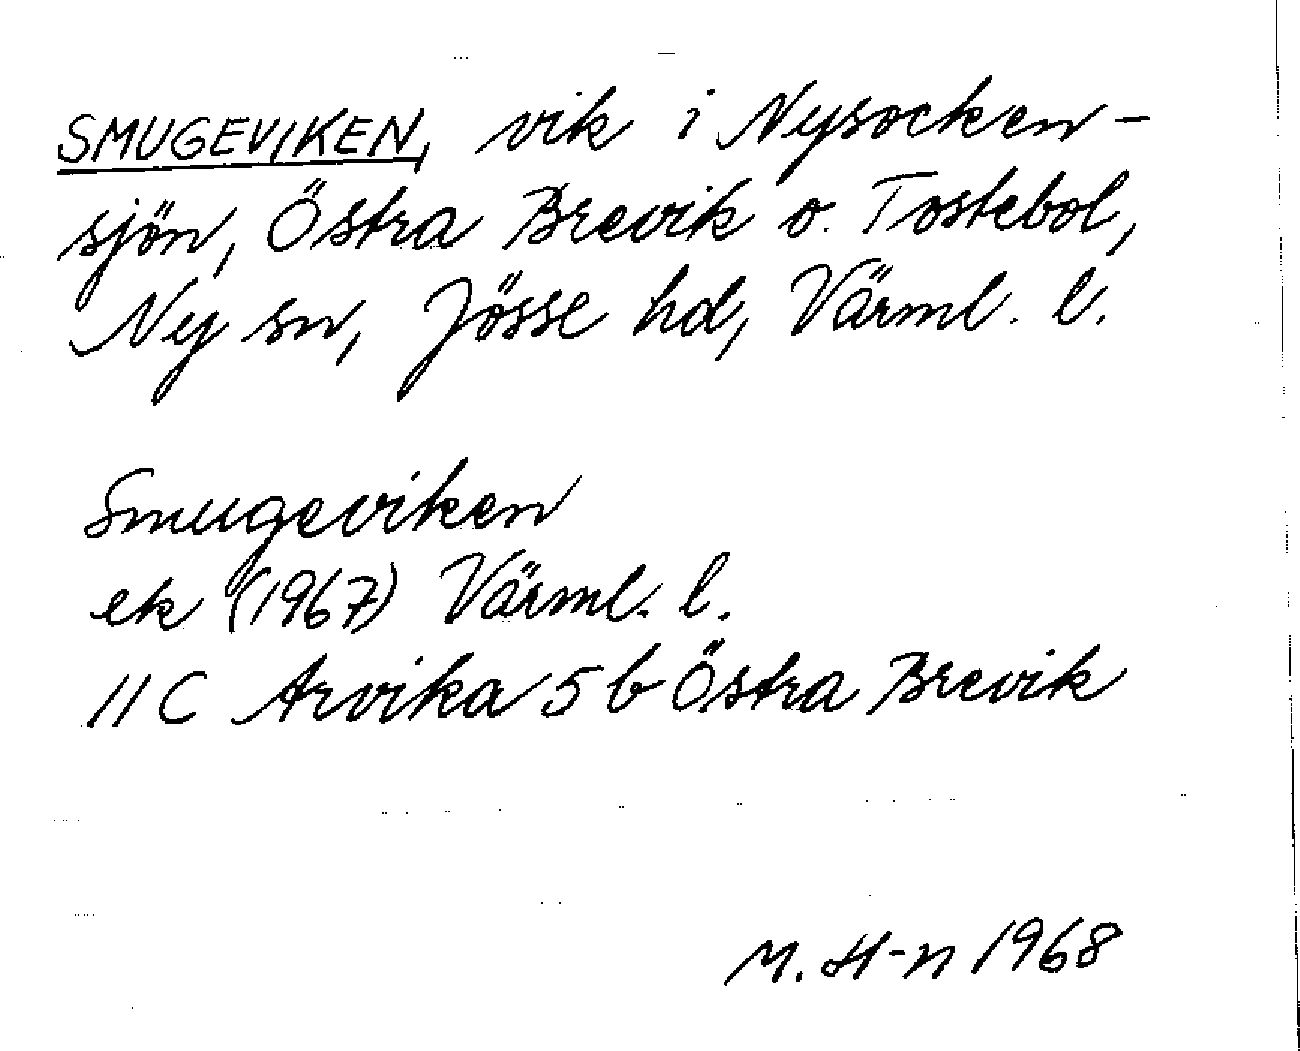 SMUGEVIKEN, vik i Nysocken-
sjön, Östra Brevik o. Tostebol,
Ny sn, Jösse hd, Värml. l.
Smugeviken
ek (1967) Värml. l.
11 C Arvika 5 b Östra Brevik
M. H-n 1968